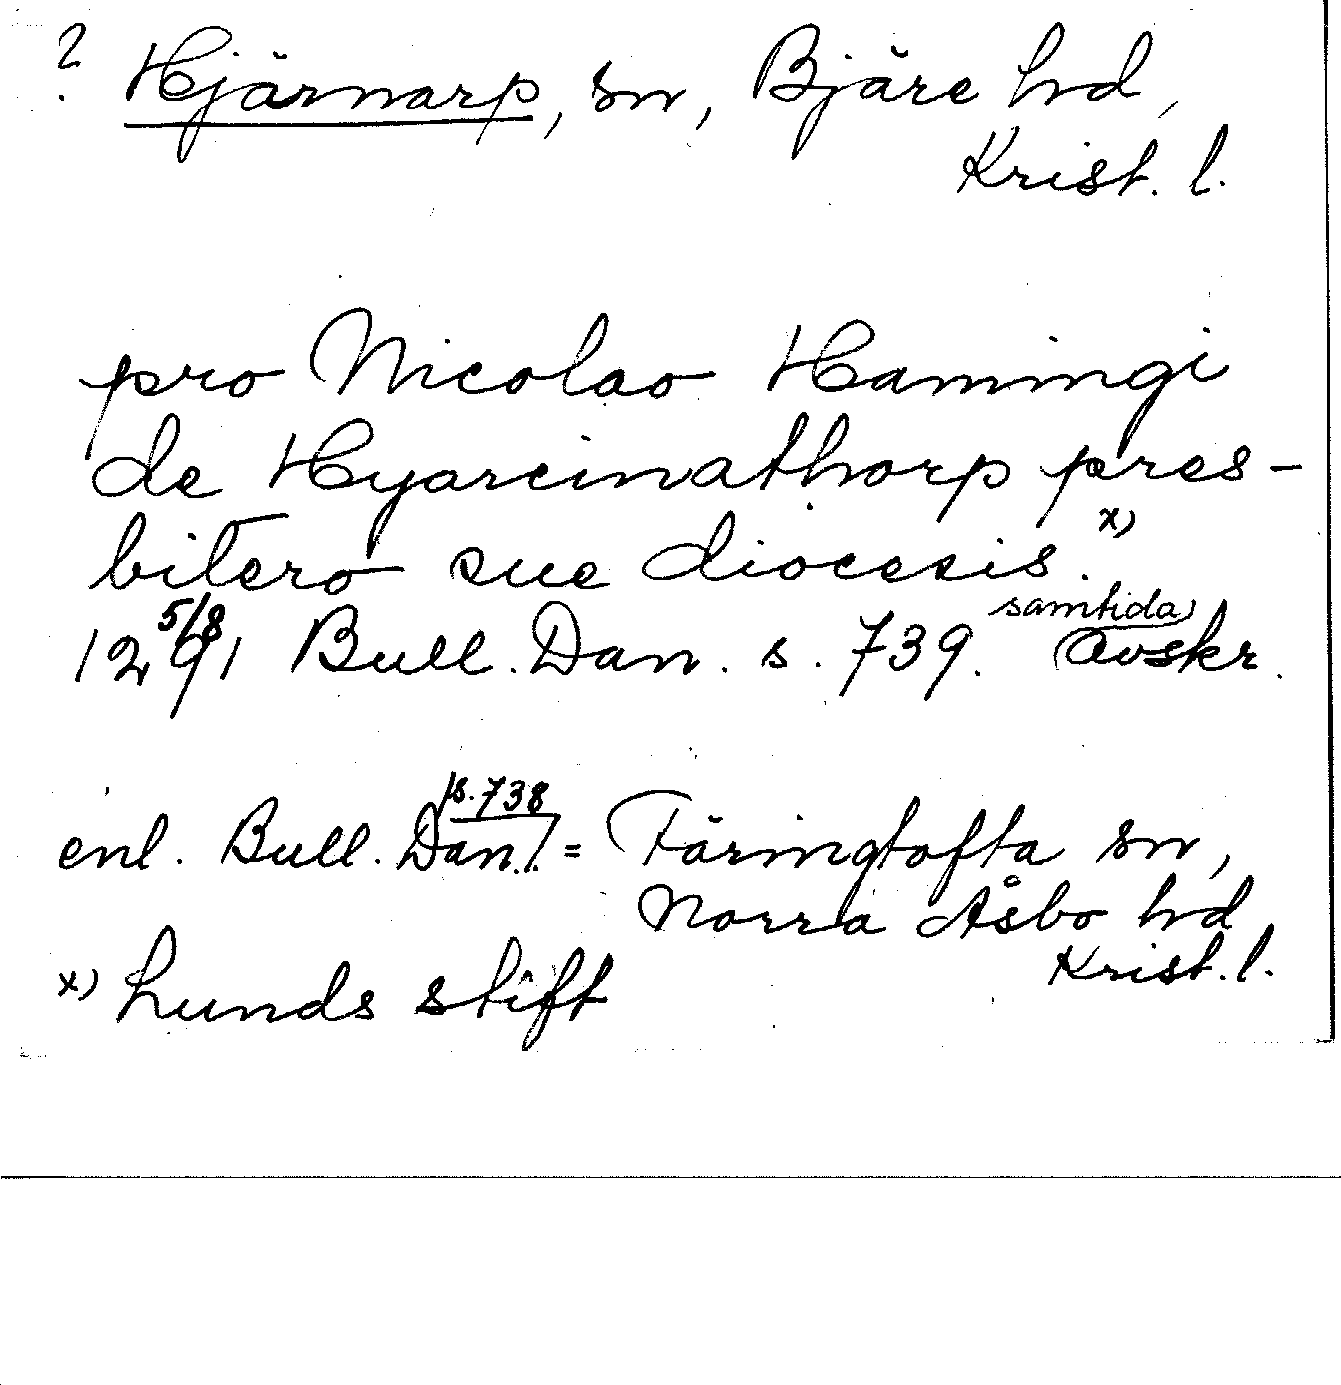 ? Hjärnarp, sn, Bjäre hd,
Krist. l.
pro Nicolao Hamingi
de Hyareinathorp pres-
bitero sue diocesis. x)
5/8 1291 Bull. Dan. s. 739. samtida avskr.
enl. Bull. Dan. /s. 738/ = Färingtofta sn,
Norra Åsbo hd
Krist. l.
x) Lunds stift